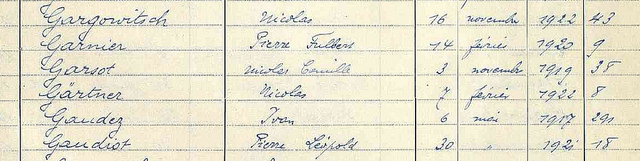 Gargowitsch Nicolas 16 novembre 1922 43
Garnier Pierre Fulbert 14 février 1920 9
Garsot Nicolas Camille 3 novembre 1919 38
Gärtner Nicolas 7 février 1922 8
Gaudez Yvan 6 mai 1917 291
Gaudiot Pierre Léopold 30 " 1921 18